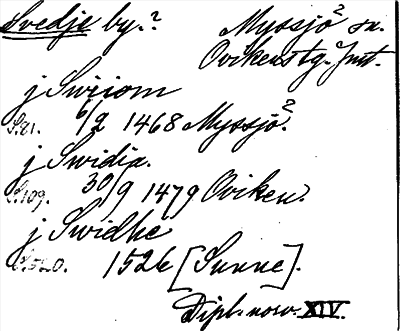 Svedje by.? Myssjö 2 sn.
Ovikens tg. Jmt.
j Swiiom
S. 81. 6/2 1468 Myssjö. 2
j Swidia.
S. 109. 30/9 1479 Oviken.
j Swidhe
S. 520. 1526 [Sunne].
Dipl. norv. XIV.